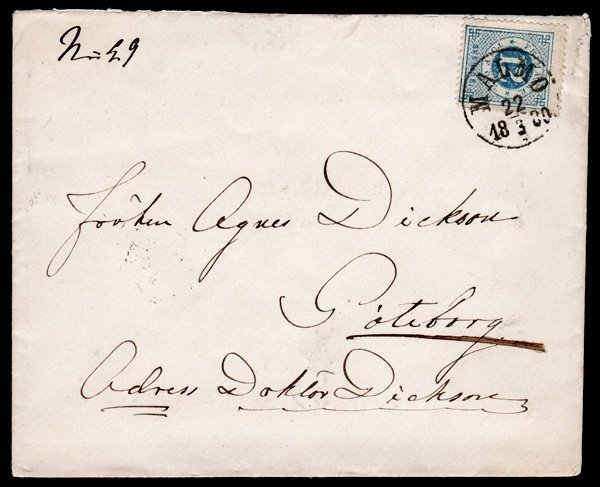 N: 29
MALMÖ
22
18 3 80
Fröken Agnes Dickson
Göteborg
Adress Doktor Dickson